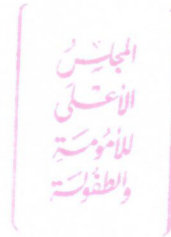 المجلس
الأعلى
للأمومة
والطفولة